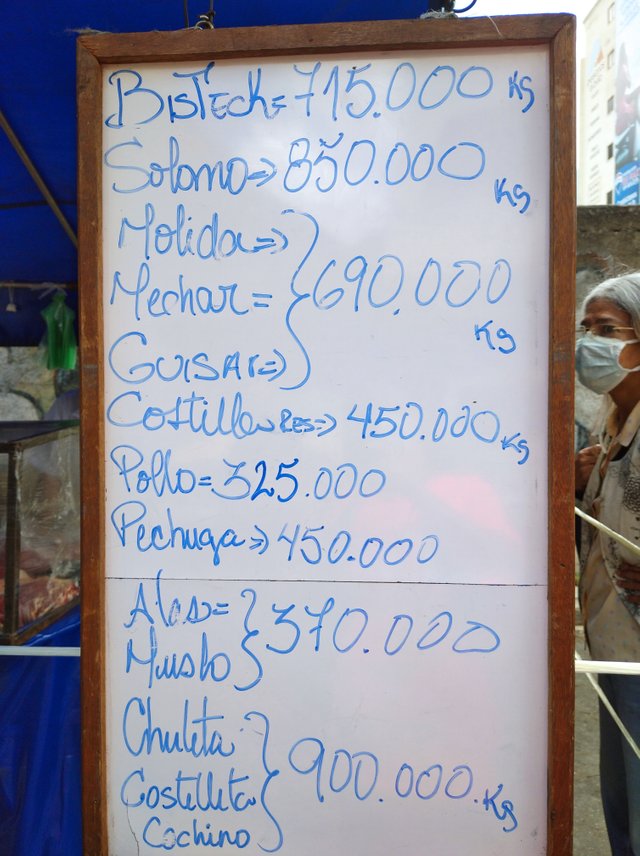 BisTeck = 715.000 Kg
Solomo => 850.000 Kg
Molida =>
Mechar = 690.000 Kg
GUISAr =>
Costilla Res => 450.000 Kg
Pollo = 325.000
Pechuga => 450.000
Alas = 370.000
Muslo
Chuleta
Costilleta 900.000. Kg
Cochino